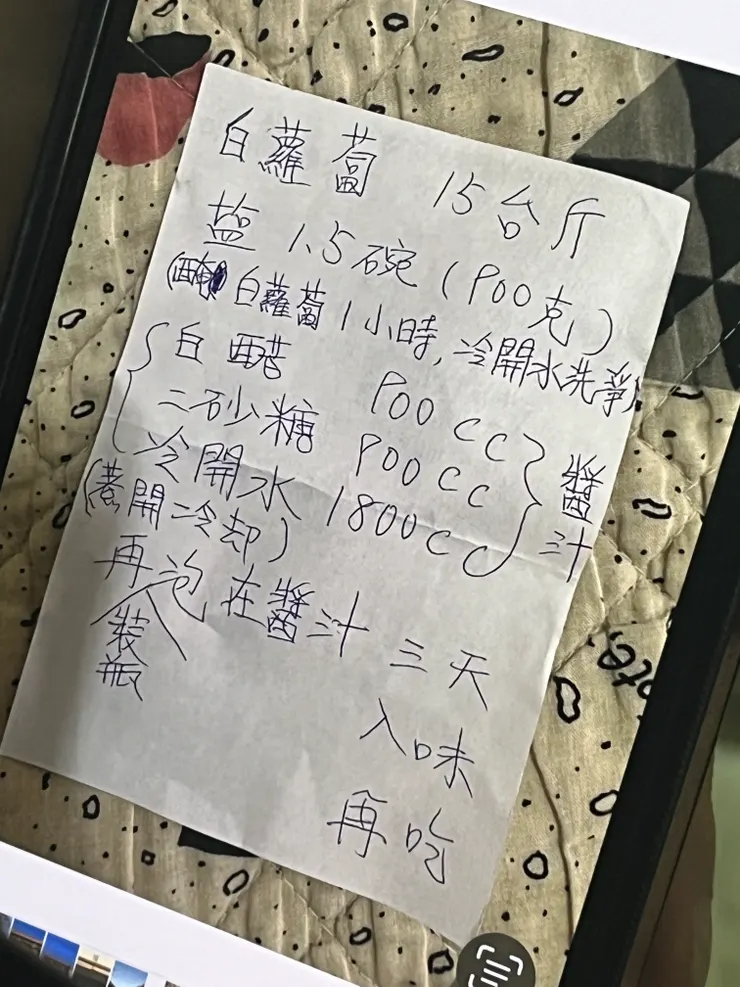 白蘿蔔 15台斤
塩 1.5碗(900克)
(醃白蘿蔔1小時,冷開水洗淨)
白醋 900cc
二砂糖 900cc
冷開水 1800cc
醬汁
(煮開冷却)
再裝瓶泡在醬汁三天
入味
再吃